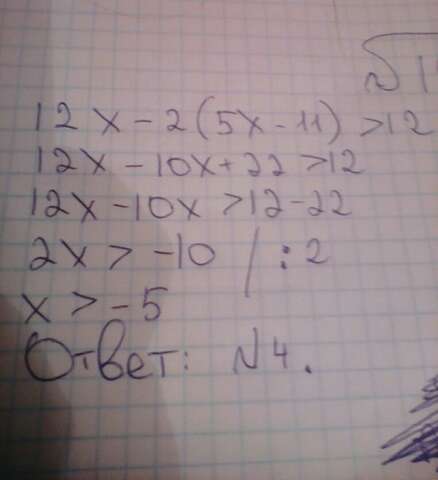 № 1
12x - 2(5x - 11) > 12
12x - 10x + 22 > 12
12x - 10x > 12 - 22
2x > -10 / : 2
x > -5
Ответ: N4.